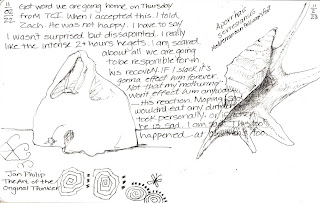 11
02
22
Got word we are going home on Thursday
from TCI. When I accepted this. I told
Zach. He was not happy. I have to say
I wasn't surprised but dissapointed. I really
like the intense 2+ hours he gets. I am scared
about all we are going
to be responsible for in
his recovery. IF I slack it's
gonna effect him forever.
Not that my mothering
won't effect him anyway
his reaction. Moping
wouldn't eat any dinner
took personally, or if
be is sad. I am sad. This too
happened at too.
A pair has
11
23
Jan Philip
The Art of the
Original Thinker